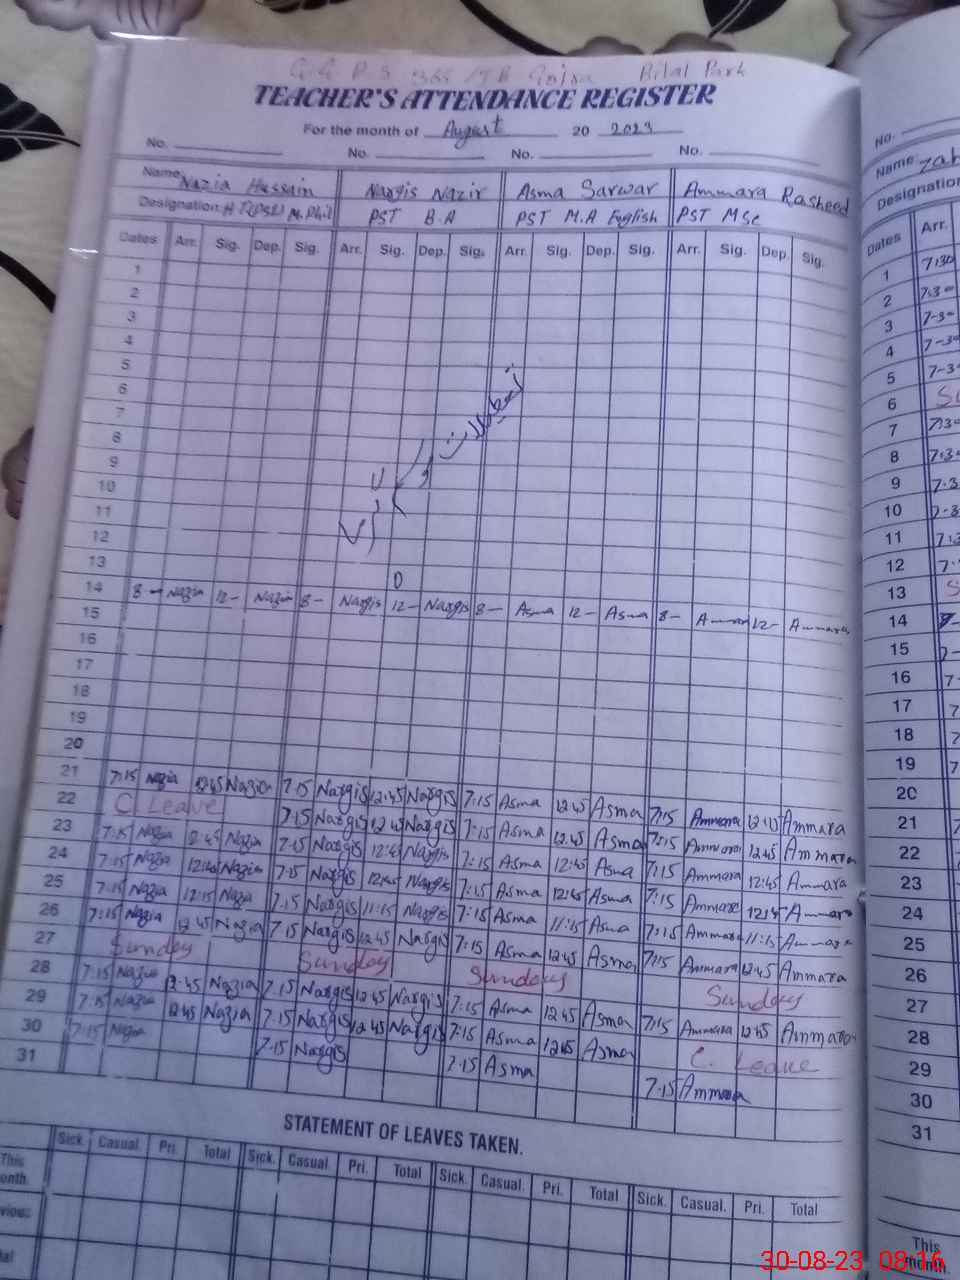 G.G.P.S 365/JB Gojra Bilal Park
TEACHER'S ATTENDANCE REGISTER
For the month of August 20 2023
No. No. No. No.
Name Nazia Hussain Nargis Nazir Asma Sarwar Ammara Rasheed
Designation: H.T(PST) M.Phil PST B.A PST M.A English PST MSc
Dates Arr. Sig. Dep. Sig. Arr. Sig. Dep. Sig. Arr. Sig. Dep. Sig. Arr. Sig. Dep. Sig.
1
2
3
4
5
6
7
8
9
10
11
12
13
تعطیلات
14 8- Nazia 12- Nazia 8- Nargis 12- Nargis 8- Asma 12- Asma 8- Ammara 12- Ammara
15
16
17
18
19
20
21 7:15 Nazia 12:45 Nazia 7:15 Nargis 12:45 Nargis 7:15 Asma 12:45 Asma 7:15 Ammara 12:45 Ammara
22 C. Leave 7:15 Nargis 12:45 Nargis 7:15 Asma 12:45 Asma 7:15 Ammara 12:45 Ammara
23 7:15 Nazia 12:45 Nazia 7:15 Nargis 12:45 Nargis 7:15 Asma 12:45 Asma 7:15 Ammara 12:45 Ammara
24 7:15 Nazia 12:45 Nazia 7:15 Nargis 12:45 Nargis 7:15 Asma 12:45 Asma 7:15 Ammara 12:45 Ammara
25 7:15 Nazia 12:15 Nazia 7:15 Nargis 11:15 Nargis 7:15 Asma 11:15 Asma 7:15 Ammara 11:15 Ammara
26 7:15 Nazia 12:45 Nazia 7:15 Nargis 12:45 Nargis 7:15 Asma 12:45 Asma 7:15 Ammara 12:45 Ammara
27 Sunday Sunday Sunday Sunday
28 7:15 Nazia 12:45 Nazia 7:15 Nargis 12:45 Nargis 7:15 Asma 12:45 Asma 7:15 Ammara 12:45 Ammara
29 7:15 Nazia 12:45 Nazia 7:15 Nargis 12:45 Nargis 7:15 Asma 12:45 Asma C. Leave
30 7:15 Nazia 7:15 Nargis 7:15 Asma 7:15 Ammara
31
STATEMENT OF LEAVES TAKEN.
Sick. Casual. Pri. Total Sick. Casual. Pri. Total Sick. Casual. Pri. Total Sick. Casual. Pri. Total
This
No.
Name
Designation
Dates Arr.
1 7:30
2 7:30
3 7-30
4 7-30
5 7-3
6
7 7:30
8 7:30
9 7-3
10 7-3
11 7:3
12 7:
13 S
14
15 7-
16 7-
17 7
18 7
19 7
20
21
22
23
24
25
26
27
28
29
30
31
This
month.
30-08-23 08:16